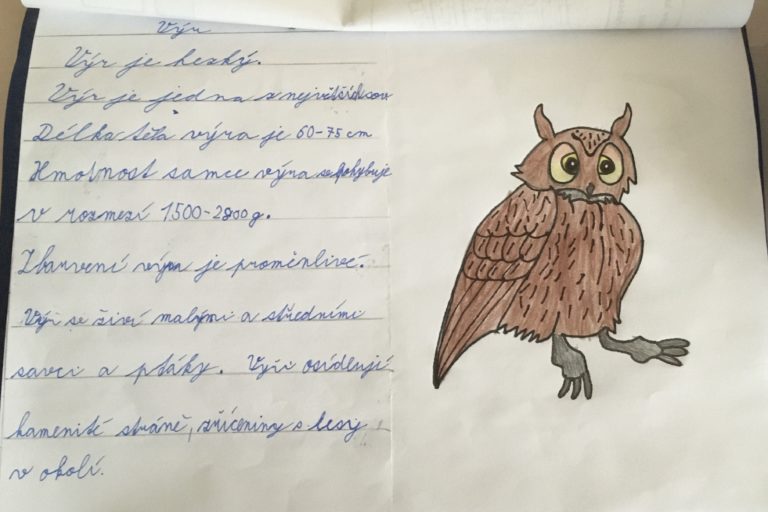 Výr
Výr je hezký.
Výr je jedna z největších sov
Délka těla výra je 60-75 cm
Hmotnost samce výra se pohybuje
v rozmezí 1500-2800g.
Zbarvení výra je proměnlivé.
Výři se živí malými a středními
savci a ptáky. Výři osídlují
kamenité stráně, zříceniny s lesy
v okolí.